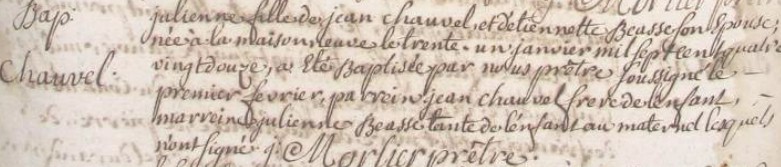 Bap.
Chauvel.
julienne fille de jean chauvel, et d'etiennette Beasse son Epouse,
née à la maison neuve le trente-un janvier mil sept cen quatre
vingt douze, a été Baptisée par nous prêtre soussigné le
premier fevrier, parrein jean chauvel frere de lenfant,
marreine julienne Beasse tante de lenfant au maternel lesquels
n'ont signé. Morlier prêtre.